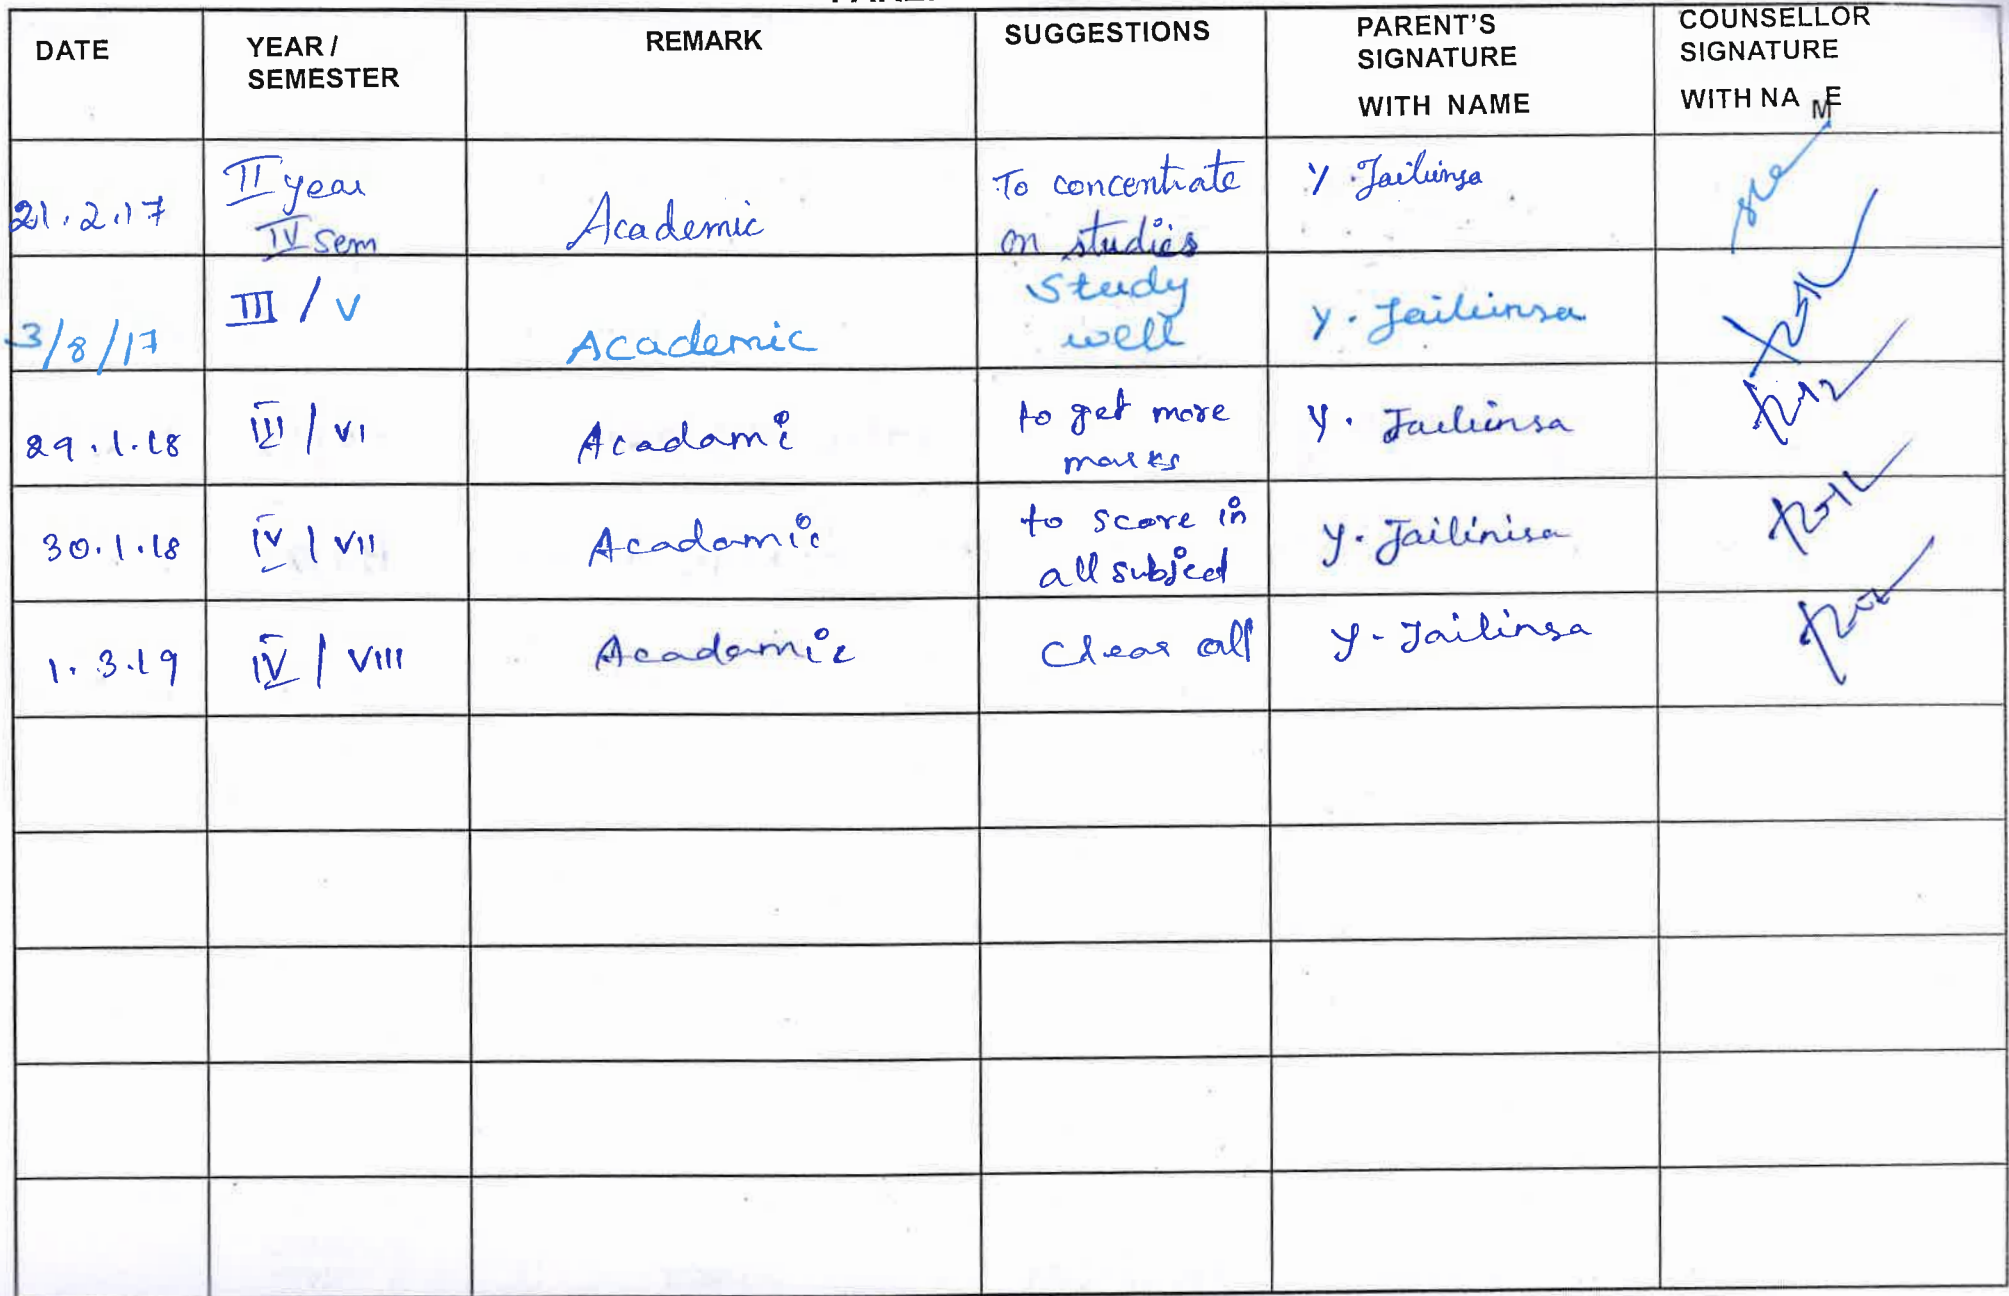 DATE
YEAR /
SEMESTER
REMARK
SUGGESTIONS
PARENT'S
SIGNATURE
WITH NAME
COUNSELLOR
SIGNATURE
WITH NAME
21.2.17
II year
IV Sem
Academic
To concentrate
on studies
Y. Jailinsa
3/8/17
III / V
Academic
Study
well
Y. Jailinsa
29.1.18
III / VI
Acadami
to get more
marks
Y. Jailinsa
30.1.18
IV / VII
Acadamic
to score in
all subject
Y. Jailinisa
1.3.19
IV / VIII
Acadamic
Clear all
Y. Jailinsa